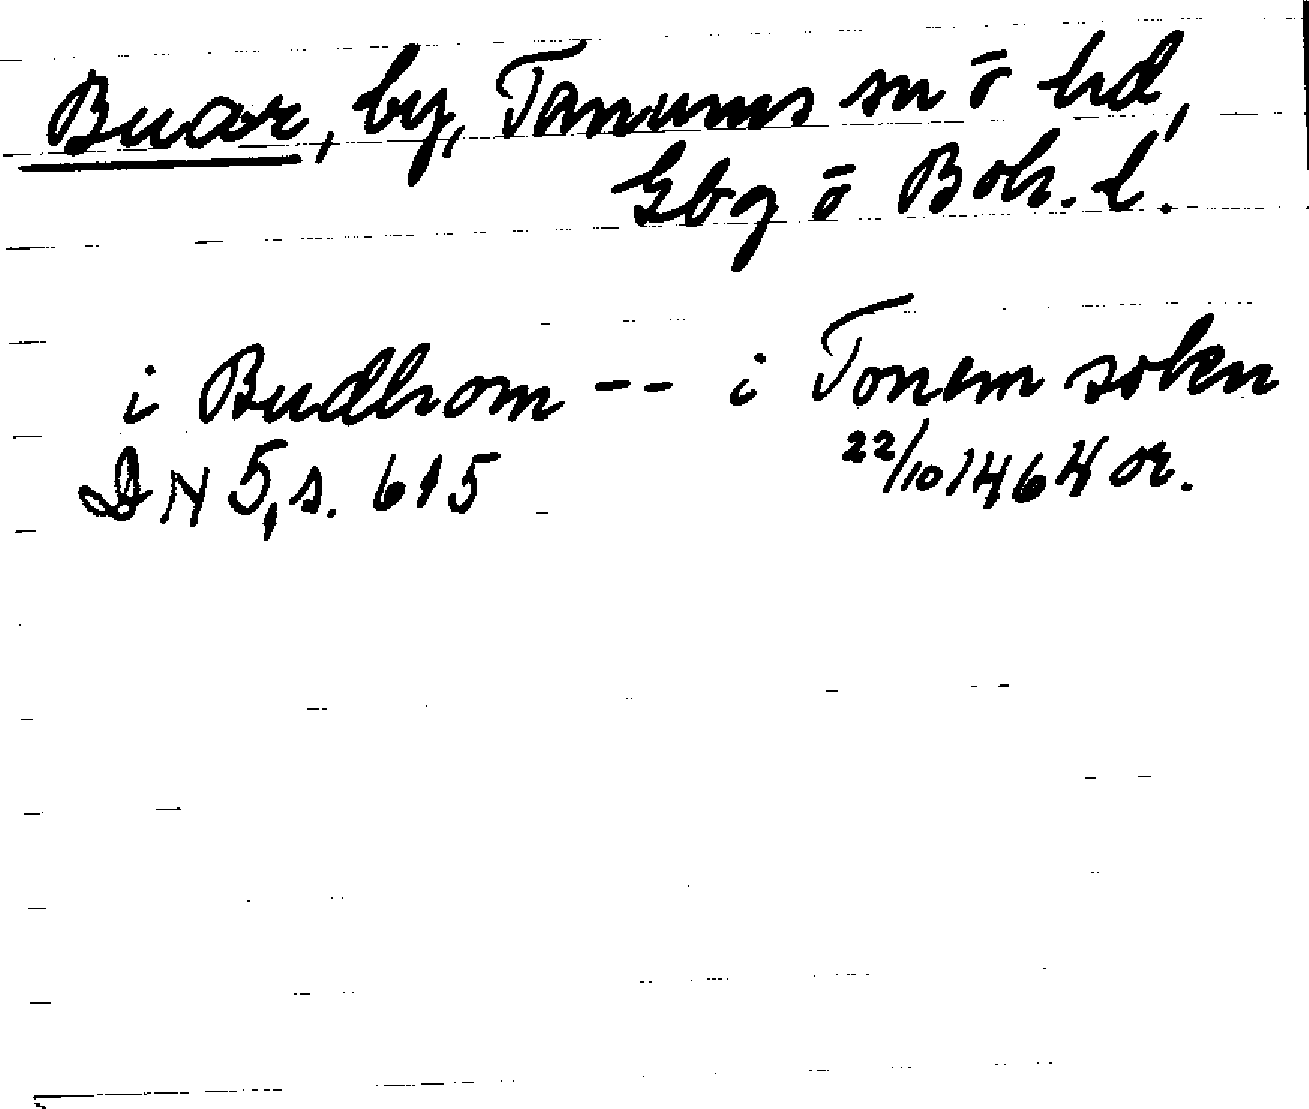 Buar, by, Tanums sn ō hd,
Gbg ō Boh. l.
i Budhom -- i Tonem sokn
DN 5, s. 615 22/10 1464 or.